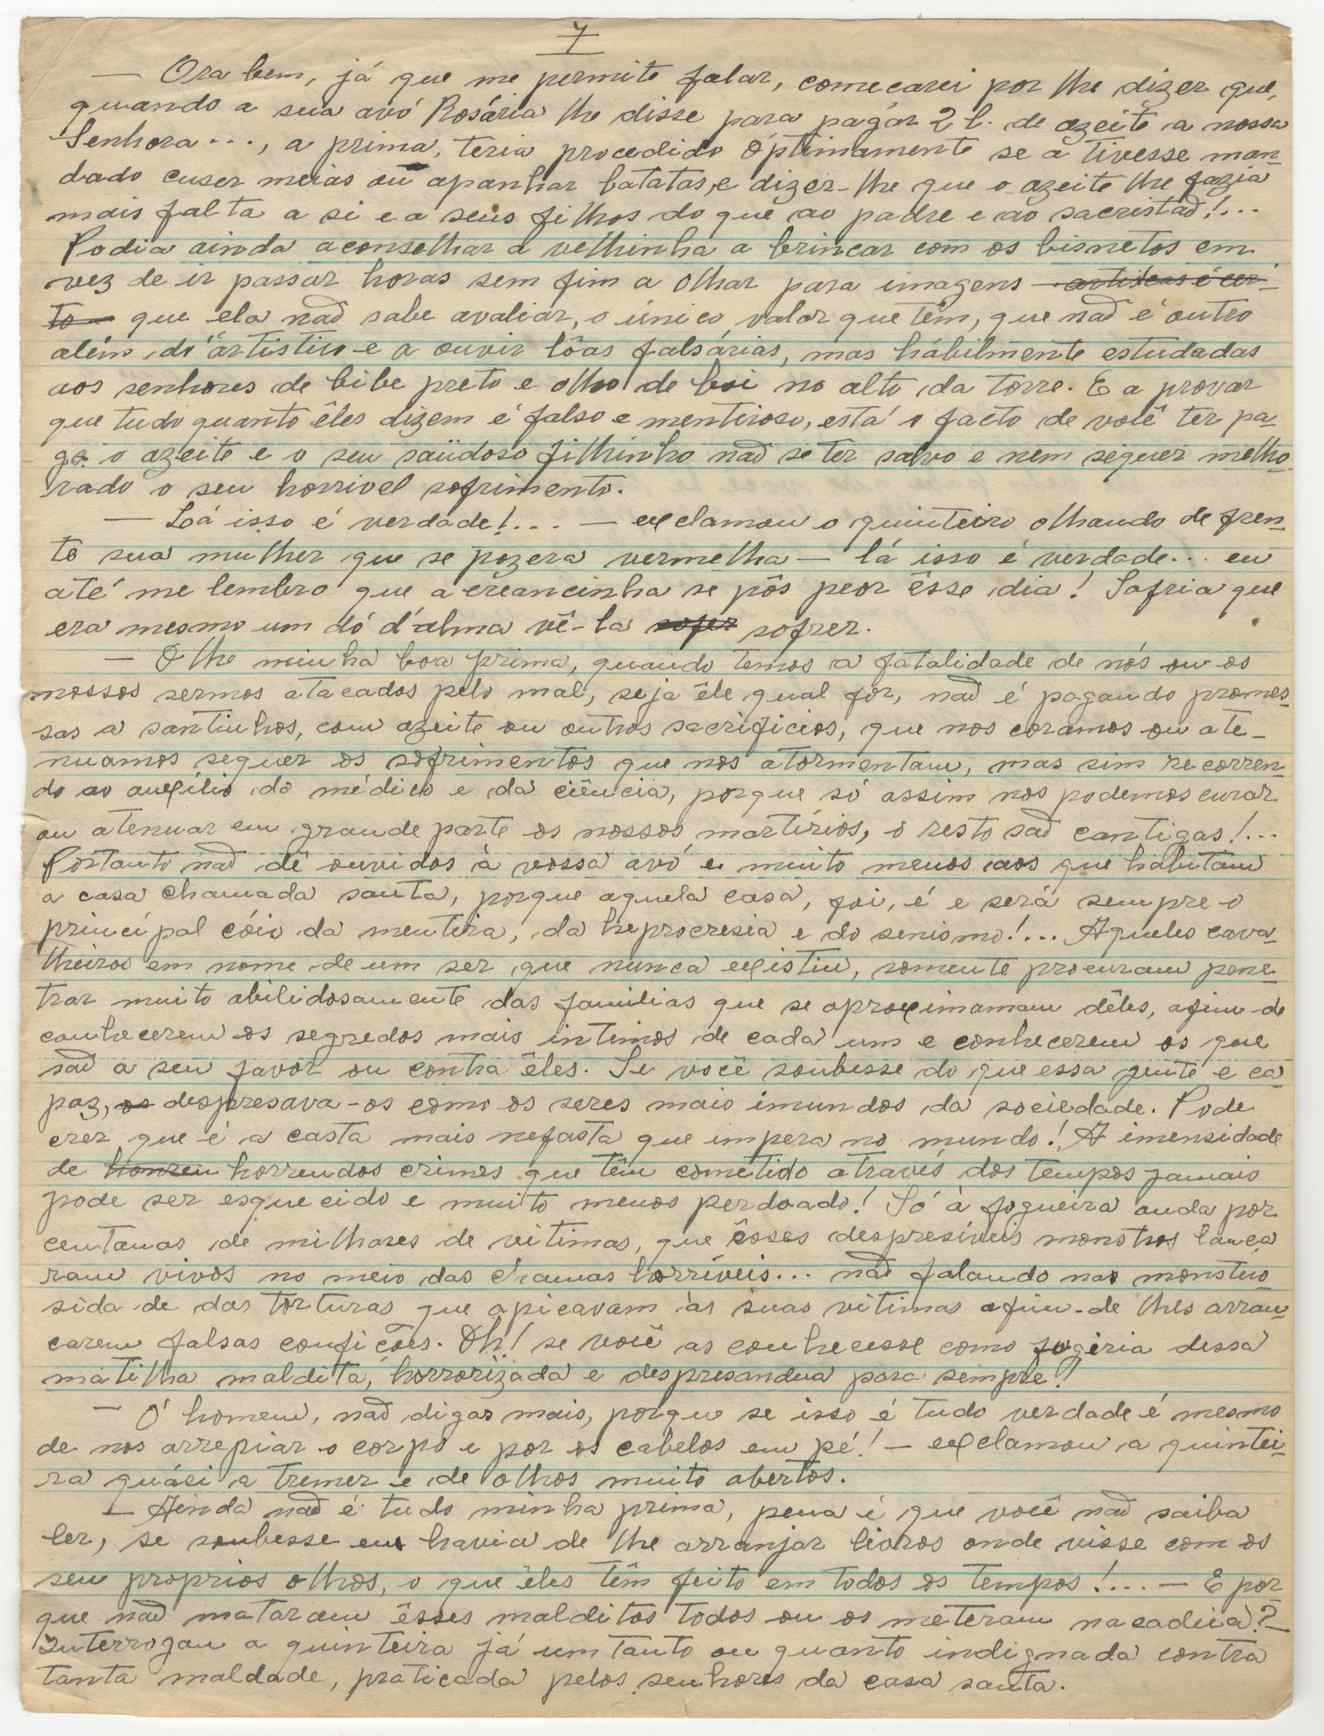 7
— Ora bem, já que me permite falar, começarei por lhe dizer que,
quando a sua avó Rosária lhe disse para pagár 2 l. de azeite a nossa
Senhora..., a prima, teria procedido óptimamente se a tivesse man-
dado cuser meias ou apanhar batatas, e dizer-lhe que o azeite lhe fazia
mais falta a si e a seus filhos do que ao padre e ao sacristão!...
Podia ainda aconselhar a velhinha a brincar com os bisnetos em
vez de ir passar horas sem fim a olhar para imagens — artisticas é cer-
to — que ela não sabe avaliar, o único valor que têm, que não é outro
além do artistico — e a ouvir lôas falsárias, mas hábilmente estudadas
aos senhores de bibe preto e olho de boi no alto da torre. E a provar
que tudo quanto êles dizem é falso e mentiroso, está o facto de você ter pa-
go o azeite e o seu saüdoso filhinho não se ter salvo e nem sequer melho-
rado o seu horrivel sofrimento.
— Lá isso é verdade!... — exclamou o quinteiro olhando de fren-
te sua mulher que se pozera vermelha — lá isso é verdade... eu
até me lembro que a creancinha se pôs peor êsse dia! Sofria que
era mesmo um dó d'alma vê-la sofer sofrer.
— Olhe minha boa prima, quando temos a fatalidade de nós ou os
nossos sermos atacados pelo mal, seja êle qual fôr, não é pagando promes-
sas a santinhos, com azeite ou outros sacrificios, que nos coramos ou ate-
nuamos sequer os sofrimentos que nos atormentam, mas sim recorren-
do ao auxílio do médico e da ciência, porque só assim nos podemos curar
ou atenuar em grande parte os nossos martírios, o resto são cantigas!...
Portanto não dê ouvidos à vossa avó e muito menos aos que habitam
a casa chamada santa, porque aquela casa, foi, é e será sempre o
principal cóio da mentira, da hiprocresia e do senismo!... Aqueles cava-
lheiros em nome de um ser que nunca existiu, somente procuram pene-
trar muito abilidosamente das familias que se aproximamam dêles, afim-de
conhecerem os segredos mais intimos de cada um e conhecerem os que
são a seu favor ou contra êles. Se você soubesse do que essa gente é ca-
paz, os despresava-os como os seres mais imundos da sociedade. Pode
crer que é a casta mais nefasta que impera no mundo! A imensidade
de horren horrendos crimes que têm cometido através dos tempos jamais
pode ser esquecido e muito menos perdoado! Só à fogueira anda por
centenas de milhares de vitimas, que êsses despresíveis monstros lança
ram vivos no meio das chamas horríveis... não falando nas monstruo
sida de das torturas que apicavam às suas vitimas afim-de lhes arran-
carem falsas confições. Oh! se você as conhecesse como fugiria dessa
matilha maldita, horrorizada e despresandoa para sempre!
— Ó homem, não digas mais, porque se isso é tudo verdade é mesmo
de nos arrepiar o corpo e por os cabelos em pé! — exclamou a quintei-
ra quási a tremer e de olhos muito abertos.
— Ainda não é tudo minha prima, pena é que você não saiba
ler, se soubesse eu havia de lhe arranjar livros onde visse com os
seu proprios olhos, o que êles têm feito em todos os tempos!... — E por
que não mataram êsses malditos todos ou os meteram na cadeia? —
Interrogou a quinteira já um tanto ou quanto indignada contra
tanta maldade, praticada pelos senhores da casa santa.